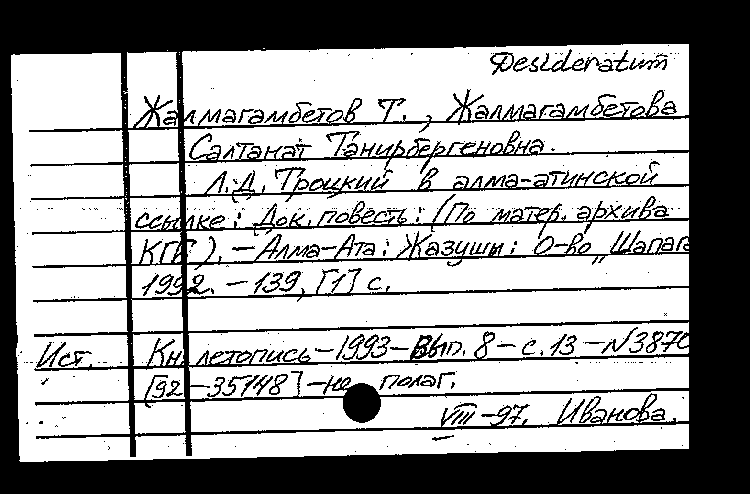 Desideratum
Жалмагамбетов Т., Жалмагамбетова
Салтанат Танирбергеновна.
Л.Д. Троцкий в алма-атинской
ссылке: Док. повесть: (По матер. архива
КГБ). — Алма-Ата: Жазушы: О-во „Шапага
1992. — 139, [1] с.
Ист. Кн. летопись — 1993 — Вып. 8 — с. 13 — N 3870
[92 — 35748] — не полаг.
VIII — 97. Иванова.